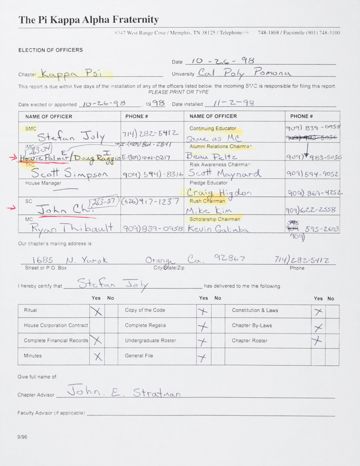 The Pi Kappa Alpha Fraternity
8347 West Range Cove / Memphis, TN 38125 / Telephone 748-1868 / Facsimile (901) 748-3100
ELECTION OF OFFICERS
Date 10-26-98
Chapter Kappa Psi University Cal Poly Pomona
This report is due within five days of the installation of any of the officers listed below; the incoming SMC is responsible for filing this report.
PLEASE PRINT OR TYPE
Date elected or appointed 10-26-98 Date installed 11-2-98
NAME OF OFFICER PHONE # NAME OF OFFICER PHONE #
SMC Continuing Education
Stefan Joly 714)282-5412 Same as MC
Alumni Relations Chairman
Doug Beau Peltz
Risk Awareness Chairman
Scott Simpson Scott Maynard 909)
House Manager Pledge Educator
Craig Higdon
SC Rush Chairman
John Chi (626)917-1237 Mike Kim 909)622-2558
MC Scholarship Chairman
Ryan Thibault 909)839-0958 Kevin
Our chapter's mailing address is
1685 N. Orange Ca. 92867 714)282-5412
Street or P.O. Box City/State/Zip Phone
I hereby certify that Stefan Joly has delivered to me the following:
Yes No Yes No Yes No
Ritual X Copy of the Code X Constitution & Laws X
House Corporation Contract Complete Regalia X Chapter By-Laws X
Complete Financial Records X Undergraduate Roster X Chapter Roster X
Minutes X General File X
Give full name of:
Chapter Advisor John E. Stratman
Faculty Advisor (if applicable)
9/96